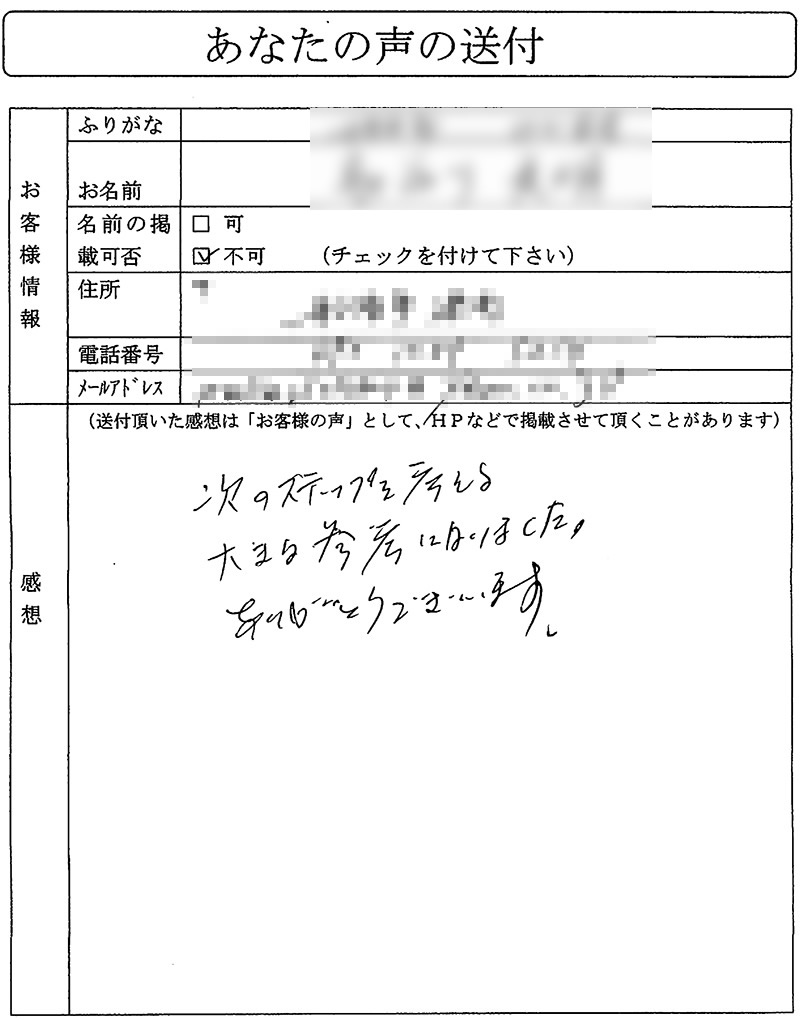 あなたの声の送付
お客様情報
ふりがな
お名前
名前の掲載可否
□ 可
☑ 不可 (チェックを付けて下さい)
住所
電話番号
メールアドレス
感想
(送付頂いた感想は「お客様の声」として、HPなどで掲載させて頂くことがあります)
次のステップを考える
大きな参考になりました。
ありがとうございます。